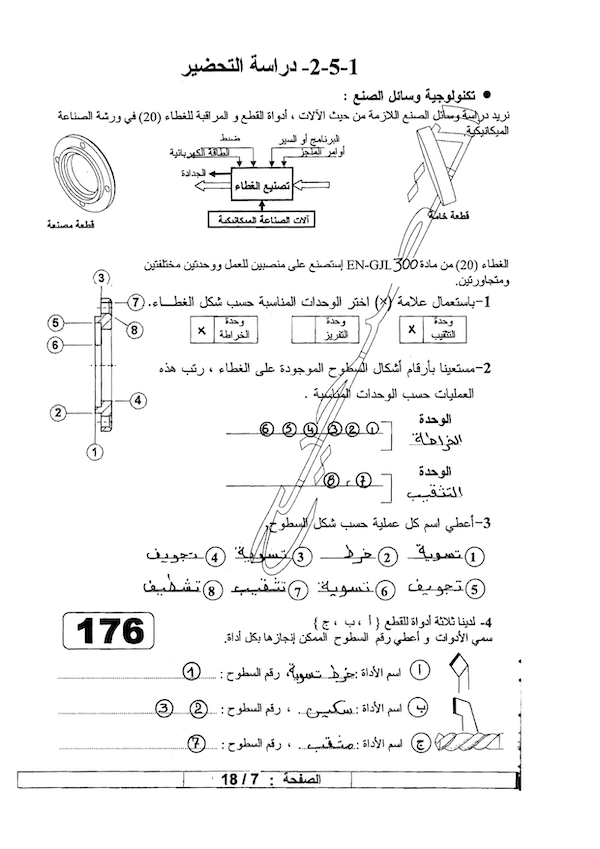 1-5-2- دراسة التحضير
• تكنولوجية وسائل الصنع :
نريد دراسة وسائل الصنع اللازمة من حيث الآلات ، أدواة القطع و المراقبة للغطاء (20) في ورشة الصناعة
الميكانيكية.
البرنامج أو السير
ضبط
أوامر المنجز
الطاقة الكهربائية
الجدادة
تصنيع الغطاء
آلات الصناعة الميكانيكية
قطعة مصنعة
قطعة خامة
الغطاء (20) من مادة EN-GJL 300 إستصنع على منصبين للعمل ووحدتين مختلفتين
ومتجاورتين.
3
7
5
8
6
4
2
1
1-باستعمال علامة (×) اختر الوحدات المناسبة حسب شكل الغطـــاء.
وحدة التثقيب x
وحدة التفريز
وحدة الخراطة x
2-مستعينا بأرقام أشكال السطوح الموجودة على الغطاء ، رتب هذه
العمليات حسب الوحدات المناسبة .
الوحدة
الخراطة
1 2 3 4 5 6
الوحدة
التثقيب
7 ، 8
3-أعطي اسم كل عملية حسب شكل السطوح.
1 تسوية 2 خرط 3 تسوية 4 تجويف
5 تجويف 6 تسوية 7 تثقيب 8 تشطيف
4- لدينا ثلاثة أدواة للقطع { أ ، ب ، ج }
سمي الأدوات و أعطي رقم السطوح الممكن إنجازها بكل أداة.
176
أ اسم الأداة : خرط تسوية، رقم السطوح : 1
ب اسم الأداة : سكين ، رقم السطوح : 2 3
ج اسم الأداة : مثقب ، رقم السطوح : 7
الصفحة : 7 / 18